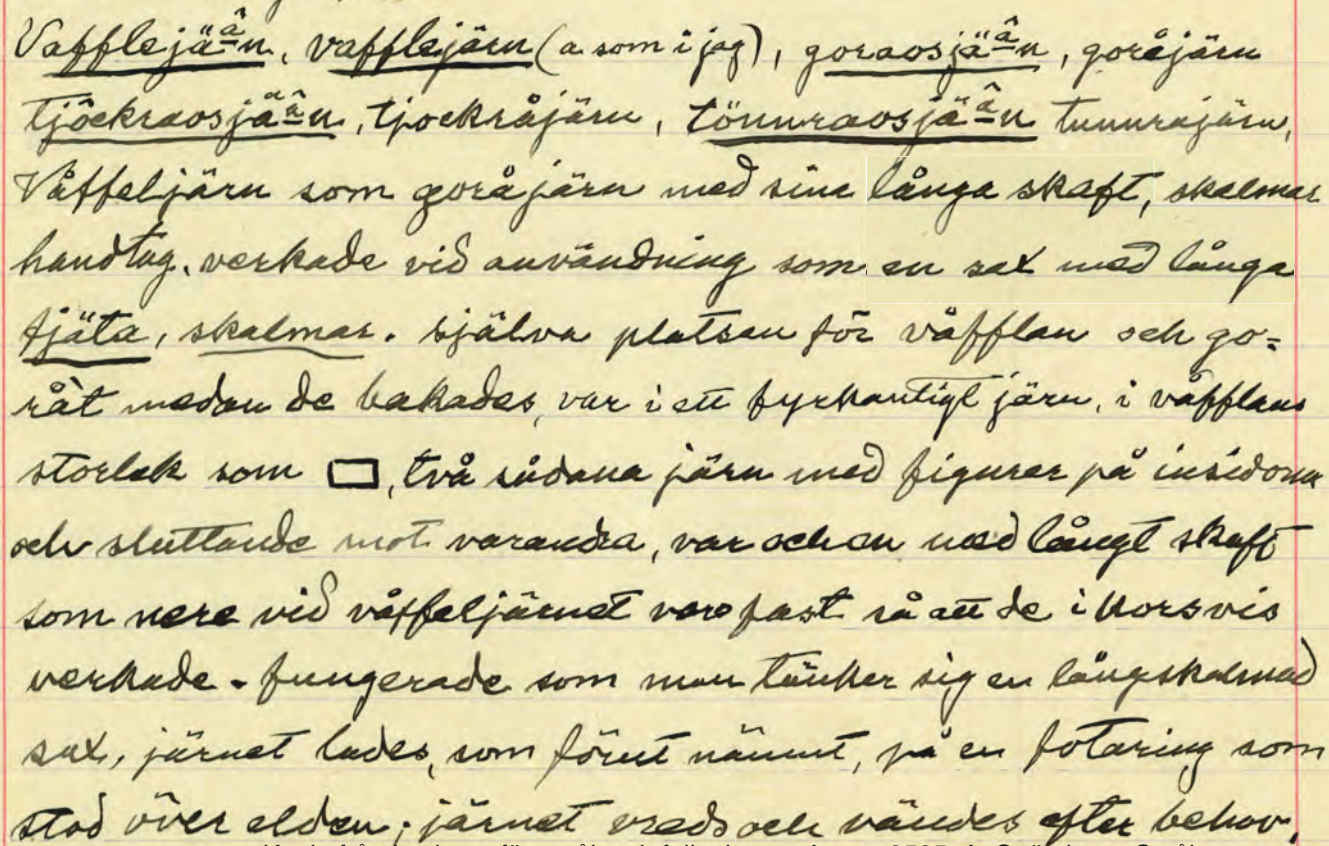 Vafflejäan, vafflejärn (a som i jag), goraosjäan, goråjärn
tjöckraosjäan, tjockråjärn, tönnraosjäan tunnråjärn,
Våffeljärn som goråjärn med sina långa skaft, skalmar
handtag. verkade vid användning som en sax med långa
tjäta, skalmar. själva platsen för våfflan och go=
råt medan de bakades, var i ett fyrkantigt järn, i våfflans
storlek som ▭, två sådana järn med figurer på insidorna
och sluttande mot varandra, var och en med långt skaft
som nere vid våffeljärnet voro fast så att de i korsvis
verkade - fungerade som man tänker sig en långskalmad
sax, järnet lades, som förut nämnt, på en fotaring som
stod över elden; järnet vreds och vändes efter behov.